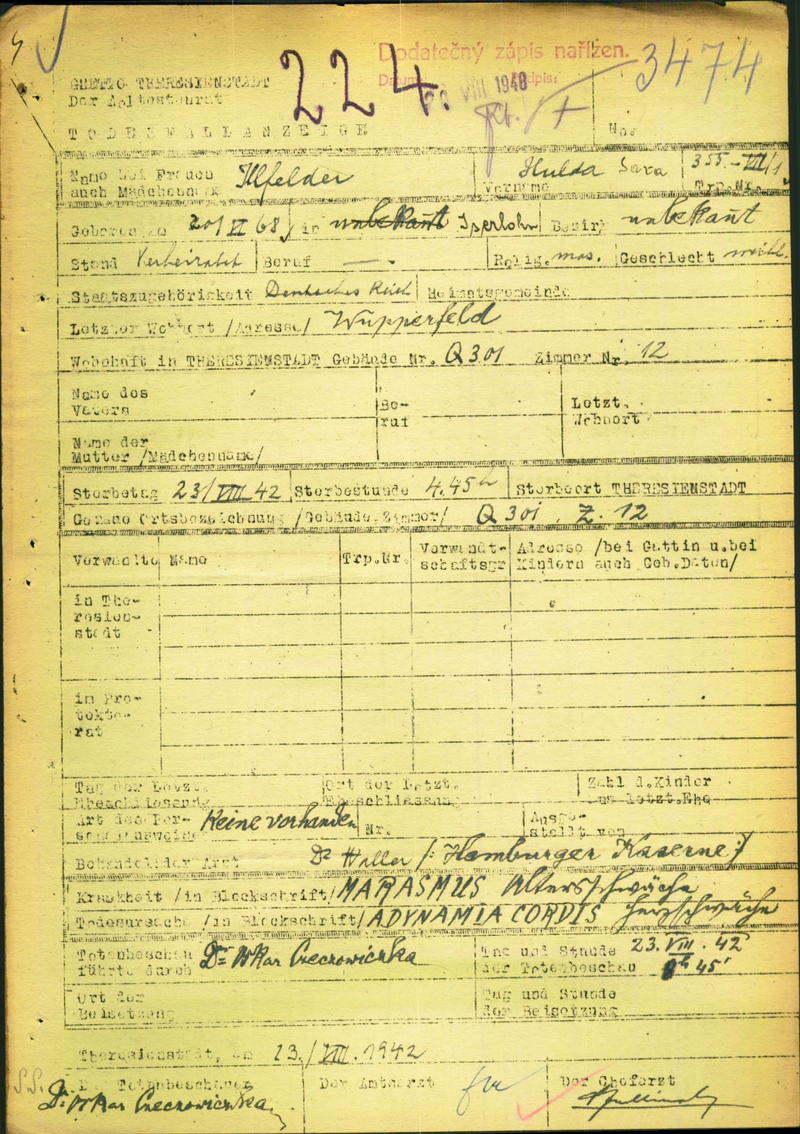 224.
Dodatečný zápis nařízen.
Datum: VIII 1948 Podpis:
3474
GHETTO THERESIENSTADT
Der Aeltestenrat
TODESFALLANZEIGE
Name bei Frauen auch Mädchenname Ilfelder Vorname Hulda Sara Trp.Nr. 355.-VII/1
Geboren am 20/VI 68 in unbekannt Iserlohn Bezirk unbekannt
Stand Verheiratet Beruf — Relig. mos. Geschlecht weibl.
Staatszugehörigkeit Deutsches Reich Heimatsgemeinde
Letzter Wohnort /Adresse/ Wupperfeld
Wohnhaft in THERESIENSTADT Gebäude Nr. Q 301 Zimmer Nr. 12
Name des Vaters Beruf Letzt. Wohnort
Name der Mutter /Mädchenname/
Sterbetag 23/VIII.42 Sterbestunde 4.45h Sterbeort THERESIENSTADT
Genaue Ortsbezeichnung /Gebäude, Zimmer/ Q 301 Z. 12
Verwandte Name Trp.Nr. Verwandt-schaftsgr Adresse /bei Gattin u.bei Kindern auch Geb.Daten/
in The-
resien-
stadt
in Pro-
tekto-
rat
Tag der Letzt. Eheschliessung Ort der Letzt. Eheschliessung Zahl d.Kinder aus letzt.Ehe
Art des Per-sonalausweise Keine vorhanden Nr. Ausge-stellt von
Behandelnder Arzt Dr Haller /: Hamburger Kaserne:/
Krankheit /in Blockschrift/ MARASMUS Altersschwäche
Todesursache /in Blockschrift/ ADYNAMIA CORDIS Herzschwäche
Totenbeschau führte durch Dr Oskar Czeczowiczka Tag und Stunde der Totenbeschau 23.VIII.42 45'
Ort der Beisetzung Tag und Stunde der Beisetzung
Theresienstadt, am 23./VIII.1942
Der Totenbeschauer Der Amtsarzt Der Chefarzt
Dr Oskar Czeczowiczka